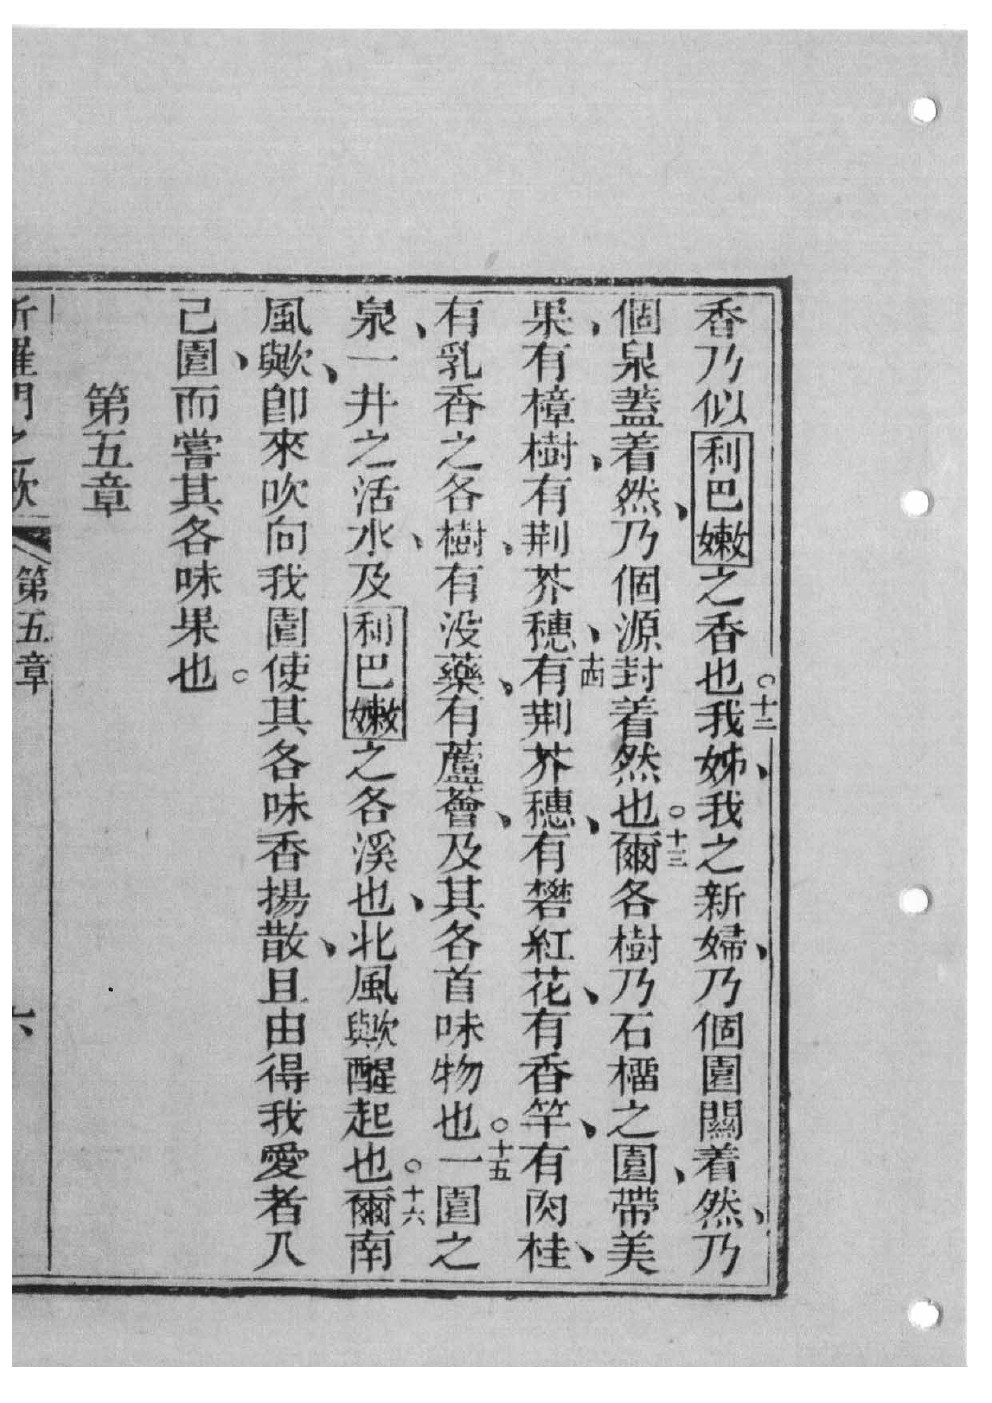 香乃似利巴嫩之香也。十二我姊、我之新婦、乃個園關着然、乃
個泉蓋着然、乃個源封着然也。十三爾各樹乃石榴之園、帶美
果、有樟樹、有荆芥穗、十四有荆芥穗、有礬紅花、有香竿、有肉桂、
有乳香之各樹、有没藥、有蘆薈、及其各首味物也。十五一園之
泉、一井之活水、及利巴嫩之各溪也、北風歟醒起也。十六爾南
風歟、即來吹向我園使其各味香揚散、且由得我愛者入
己園、而嘗其各味果也。
第五章
所羅門之歌 第五章 六